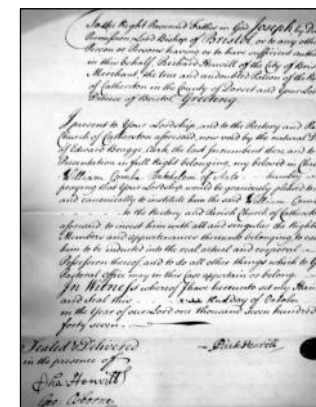 To the Right Reverend Father in God Joseph by Divine
Permission Lord Bishop of Bristol or to any other
Person or Persons having or to have sufficient autho
in this behalf, Richard Henvill of the City of Bris
Merchant, the true and undoubted Patron of the
of Catherston in the County of Dorset and Your Lord
Diocese of Bristol Greeting
I present to Your Lordship, and to the Rectory and Pa
Church of Catherston aforesaid, now void by the natural D
of Edward Bragge Clerk, the last Incumbent there, and to
Presentation in full Right belonging, my beloved in Christ
William Combe Batchelor of Arts humbly
praying that Your Lordship would be graciously pleased to
and canonically to institute him the said William Comb
to the Rectory and Parish Church of Catherston
aforesaid to invest him with all and singular the Rights
Members and appurtenances thereunto belonging, to cause
him to be inducted into the real actual and corporal
Possession thereof, and to do all other things which to Y
Pastoral office may in this Case appertain or belong.
In Witness whereof I have hereunto set my Han
and Seal this day of October
in the Year of our Lord one thousand seven hundred
forty seven
Sealed & Delivered
in the presence of
Rich Henvill
Henvill
Geo: Osborne